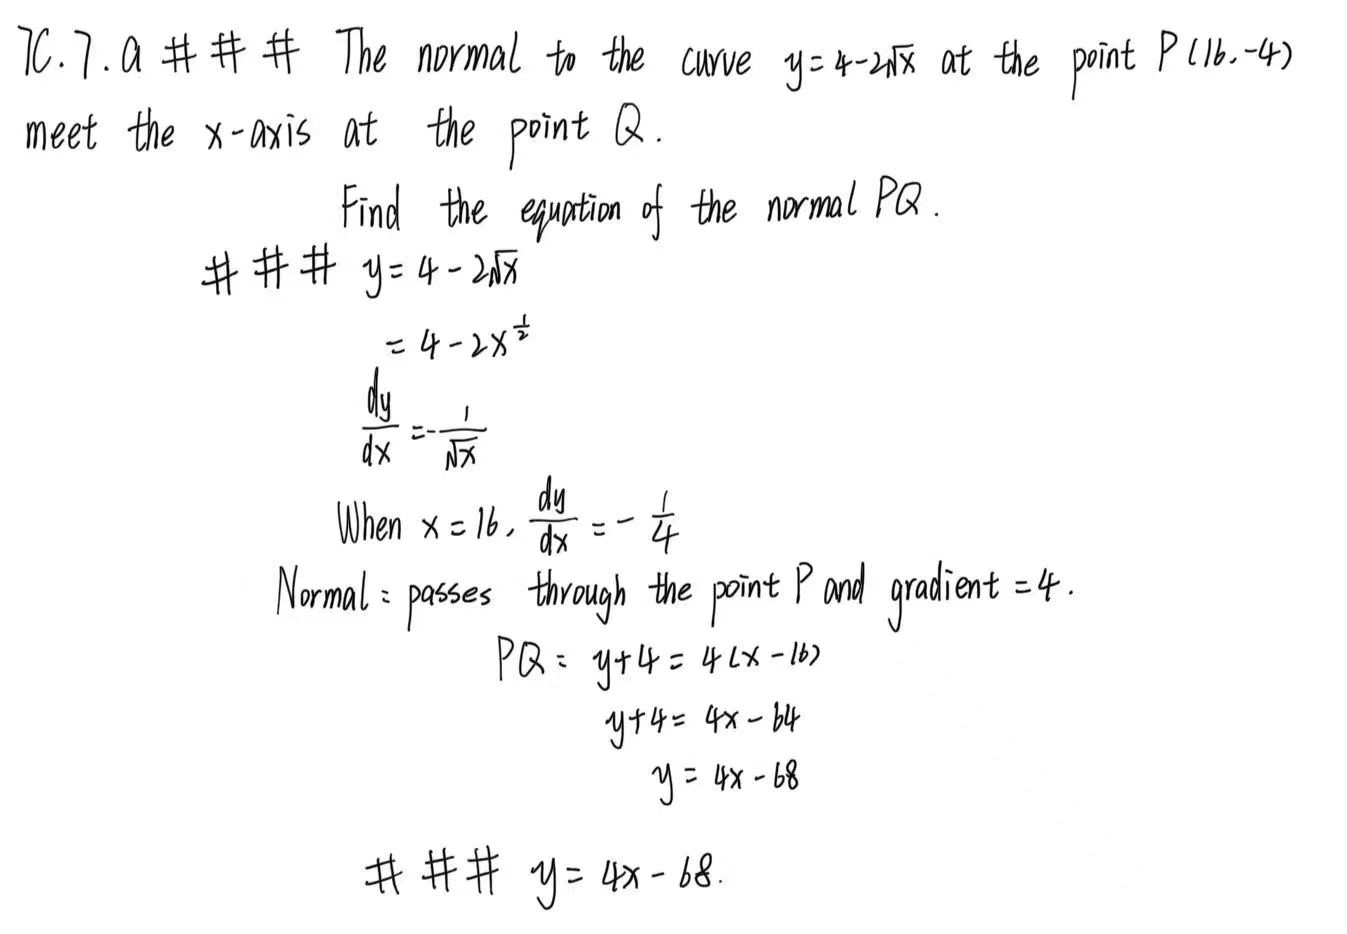 7C.7.a ### The normal to the curve y=4-2√x at the point P(16,-4)
meet the x-axis at the point Q.
Find the equation of the normal PQ.
### y=4-2√x
=4-2x^(1/2)
dy/dx=-1/√x
When x=16, dy/dx=-1/4
Normal: passes through the point P and gradient=4.
PQ: y+4=4(x-16)
y+4=4x-64
y=4x-68
### y=4x-68.